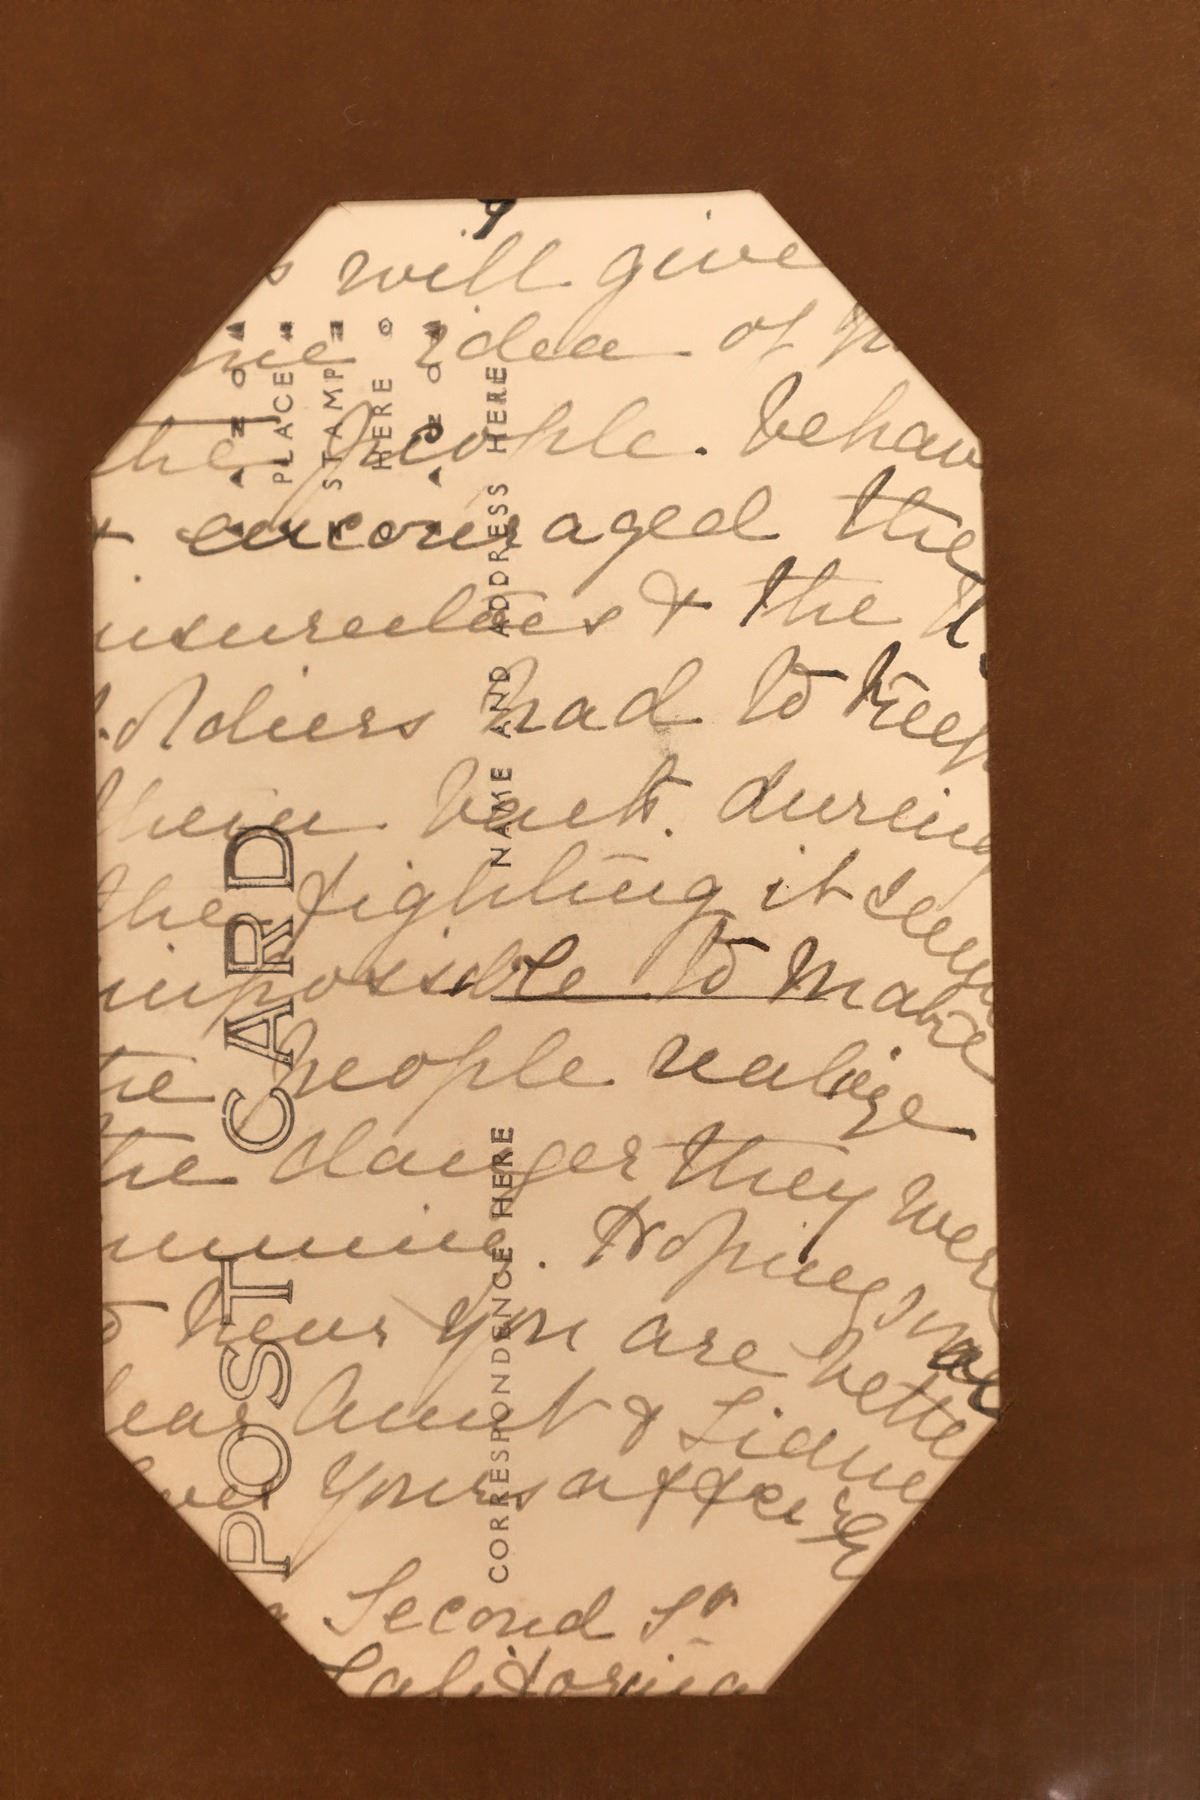 s will give
me idea of
the people. behav
& encouraged the
insurectoes & the U.
soldiers had to keep
them back. during
the fighting it seem
impossible to make
the people realize
the danger they were
running. Hoping
to hear you are bette
dear Aunt &
love yours affec
Second St
California
PLACE
STAMP
HERE
POST CARD
NAME AND ADDRESS HERE
CORRESPONDENCE HERE